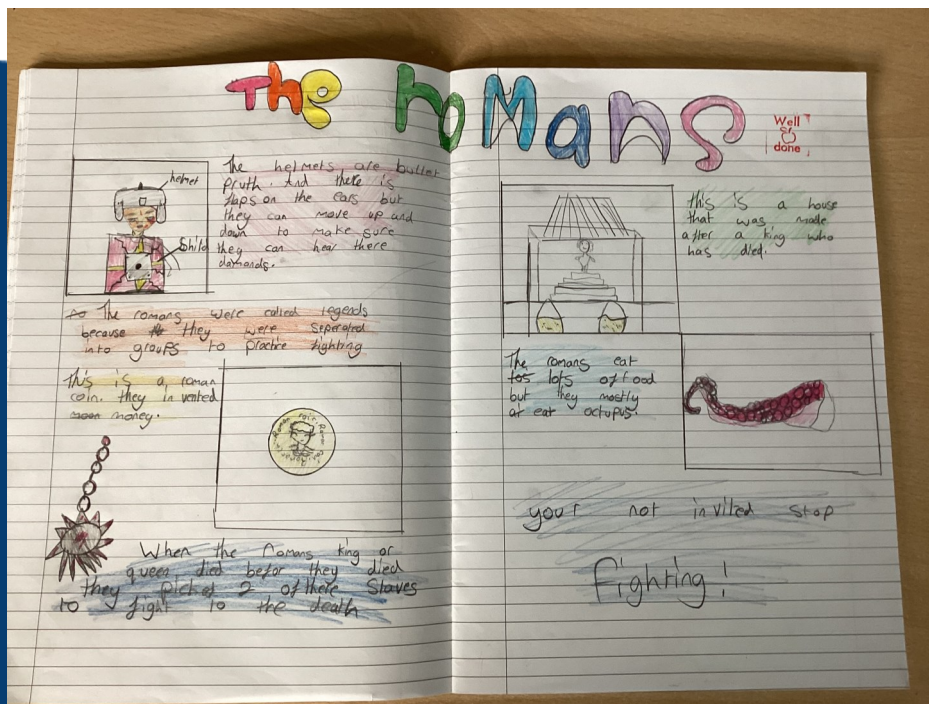 The romans
Well
done
helmet
Shild
The helmets are bullet
pruth. And there is
flaps on the ears but
they can move up and
down to make sure
they can hear there
damands.
The romans were called legends
because they were seperated
into groups to practice fighting
This is a roman
coin. they in vented
money.
When the romans king or
queen died befor they died
they picked 2 of there Slaves
to fight to the death
this is a house
that was made
after a king who
has died.
The romans eat
lots of food
but they mostly
eat octupus.
your not invited stop
Fighting!